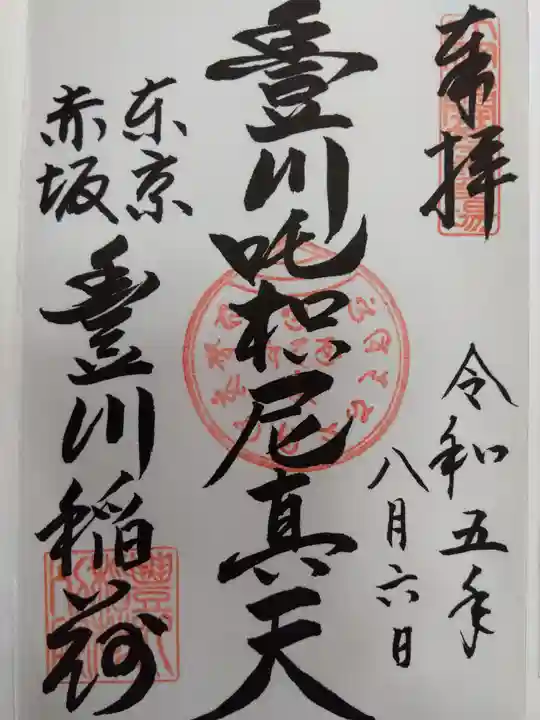 奉拝
令和五年
八月六日
豐川吒枳尼真天
東京
赤坂
豐川稲荷